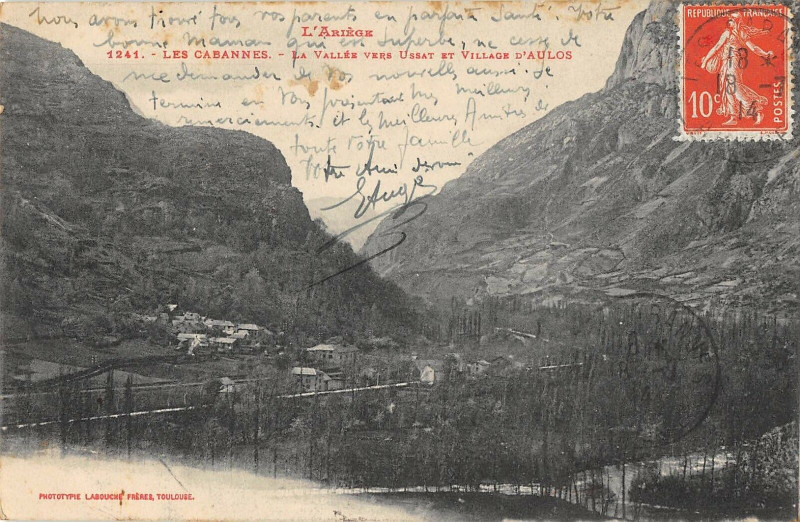 Nous avons trouvé tous vos parents en parfaite Santé. Votre
bonne Maman qui est Superbe, ne cesse de
me demander de vos nouvelles aussi je
termine en vous présentant mes meilleurs
remerciements et les meilleures Amitiés de
toute votre famille
Votre Ami
L'Ariège
1241. - Les Cabannes. - La Vallée vers Ussat et Village d'AULOS
RÉPUBLIQUE FRANÇAISE
10c
POSTES
18
14
PHOTOTYPIE LABOUCHE FRÈRES, TOULOUSE.